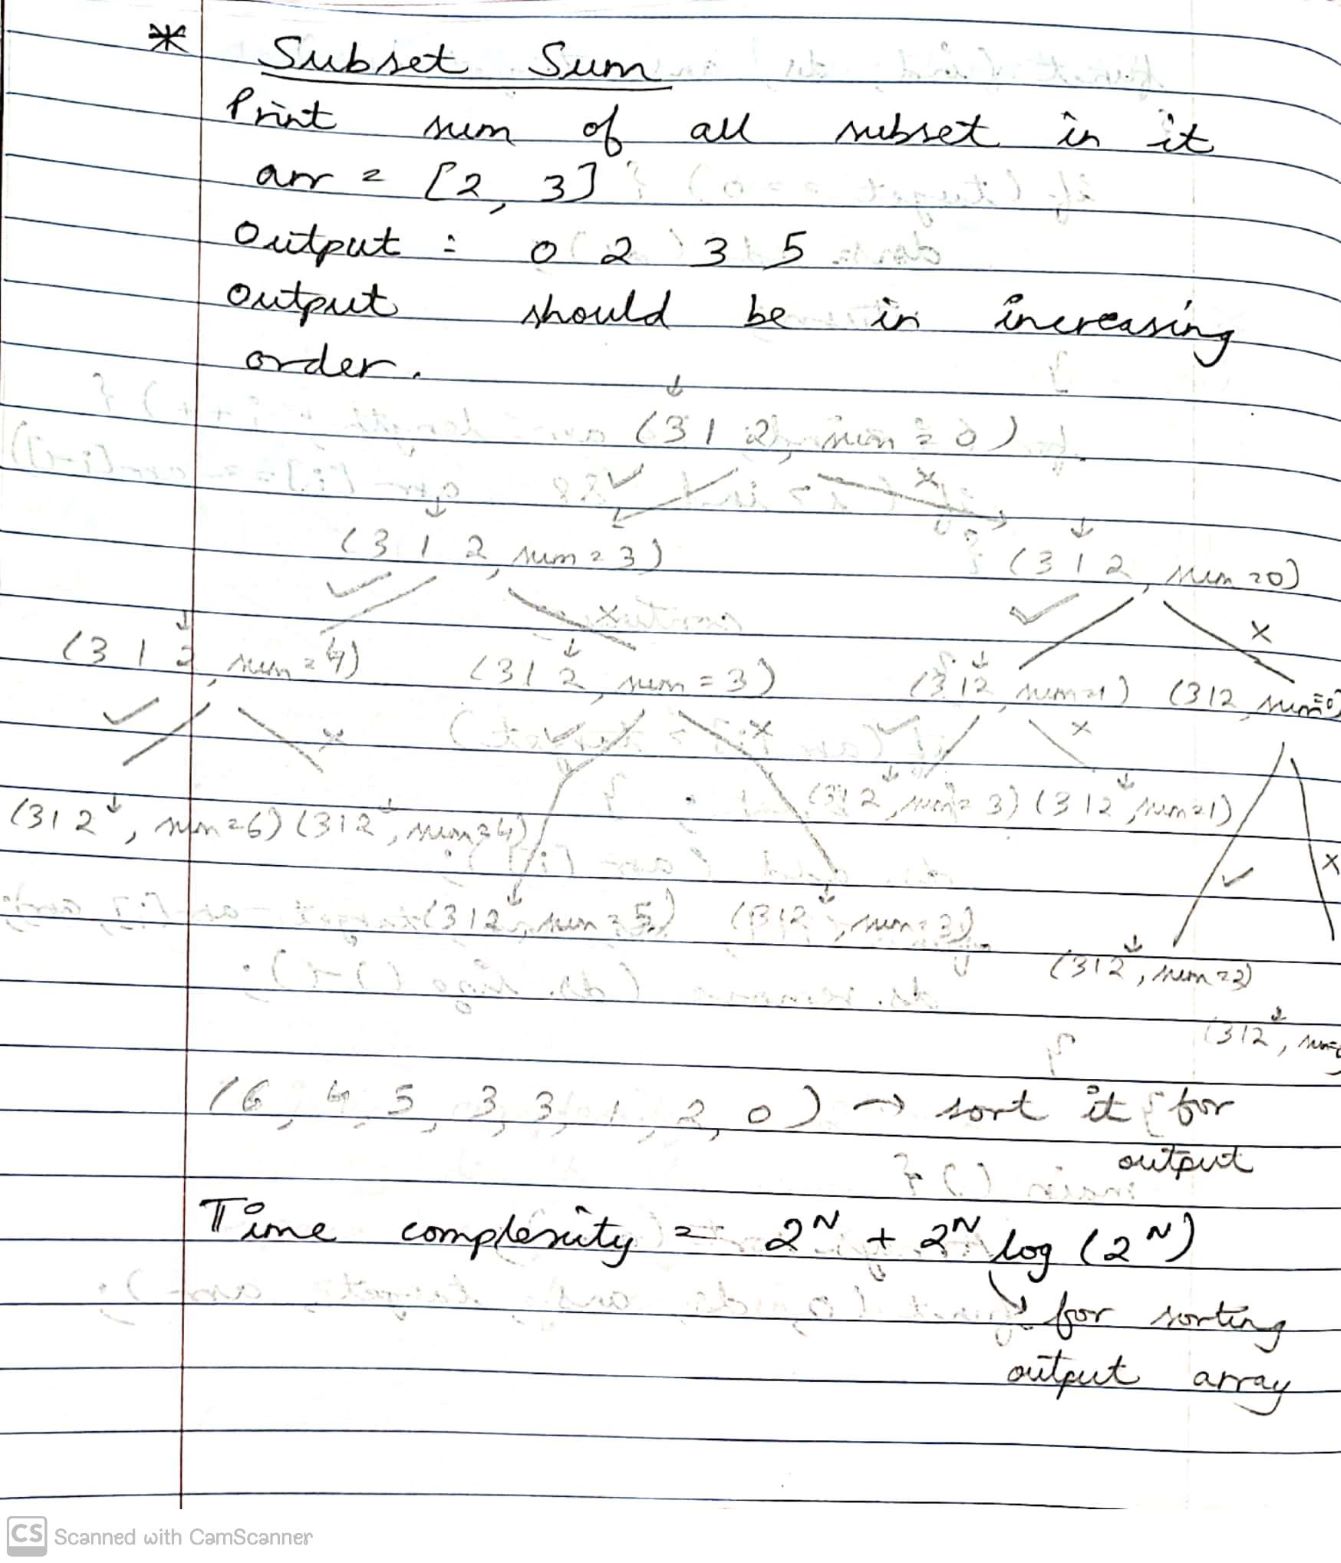 * Subset Sum
Print sum of all subset in it
arr = [2, 3]
Output : 0 2 3 5
Output should be in increasing
order.
(3 1 2, sum = 0)
(3 1 2, sum = 3) (3 1 2, sum = 0)
(3 1 2, sum = 4) (3 1 2, sum = 3) (3 1 2, sum = 1) (3 1 2, sum = 0)
(3 1 2, sum = 6) (3 1 2, sum = 4) (3 1 2, sum = 3) (3 1 2, sum = 1)
(3 1 2, sum = 5) (3 1 2, sum = 3)
(3 1 2, sum = 2)
(3 1 2, sum =
(6, 4, 5, 3, 3, 1, 2, 0) → sort it for
output
Time complexity = 2^N + 2^N log (2^N)
↳ for sorting
output array
CS Scanned with CamScanner